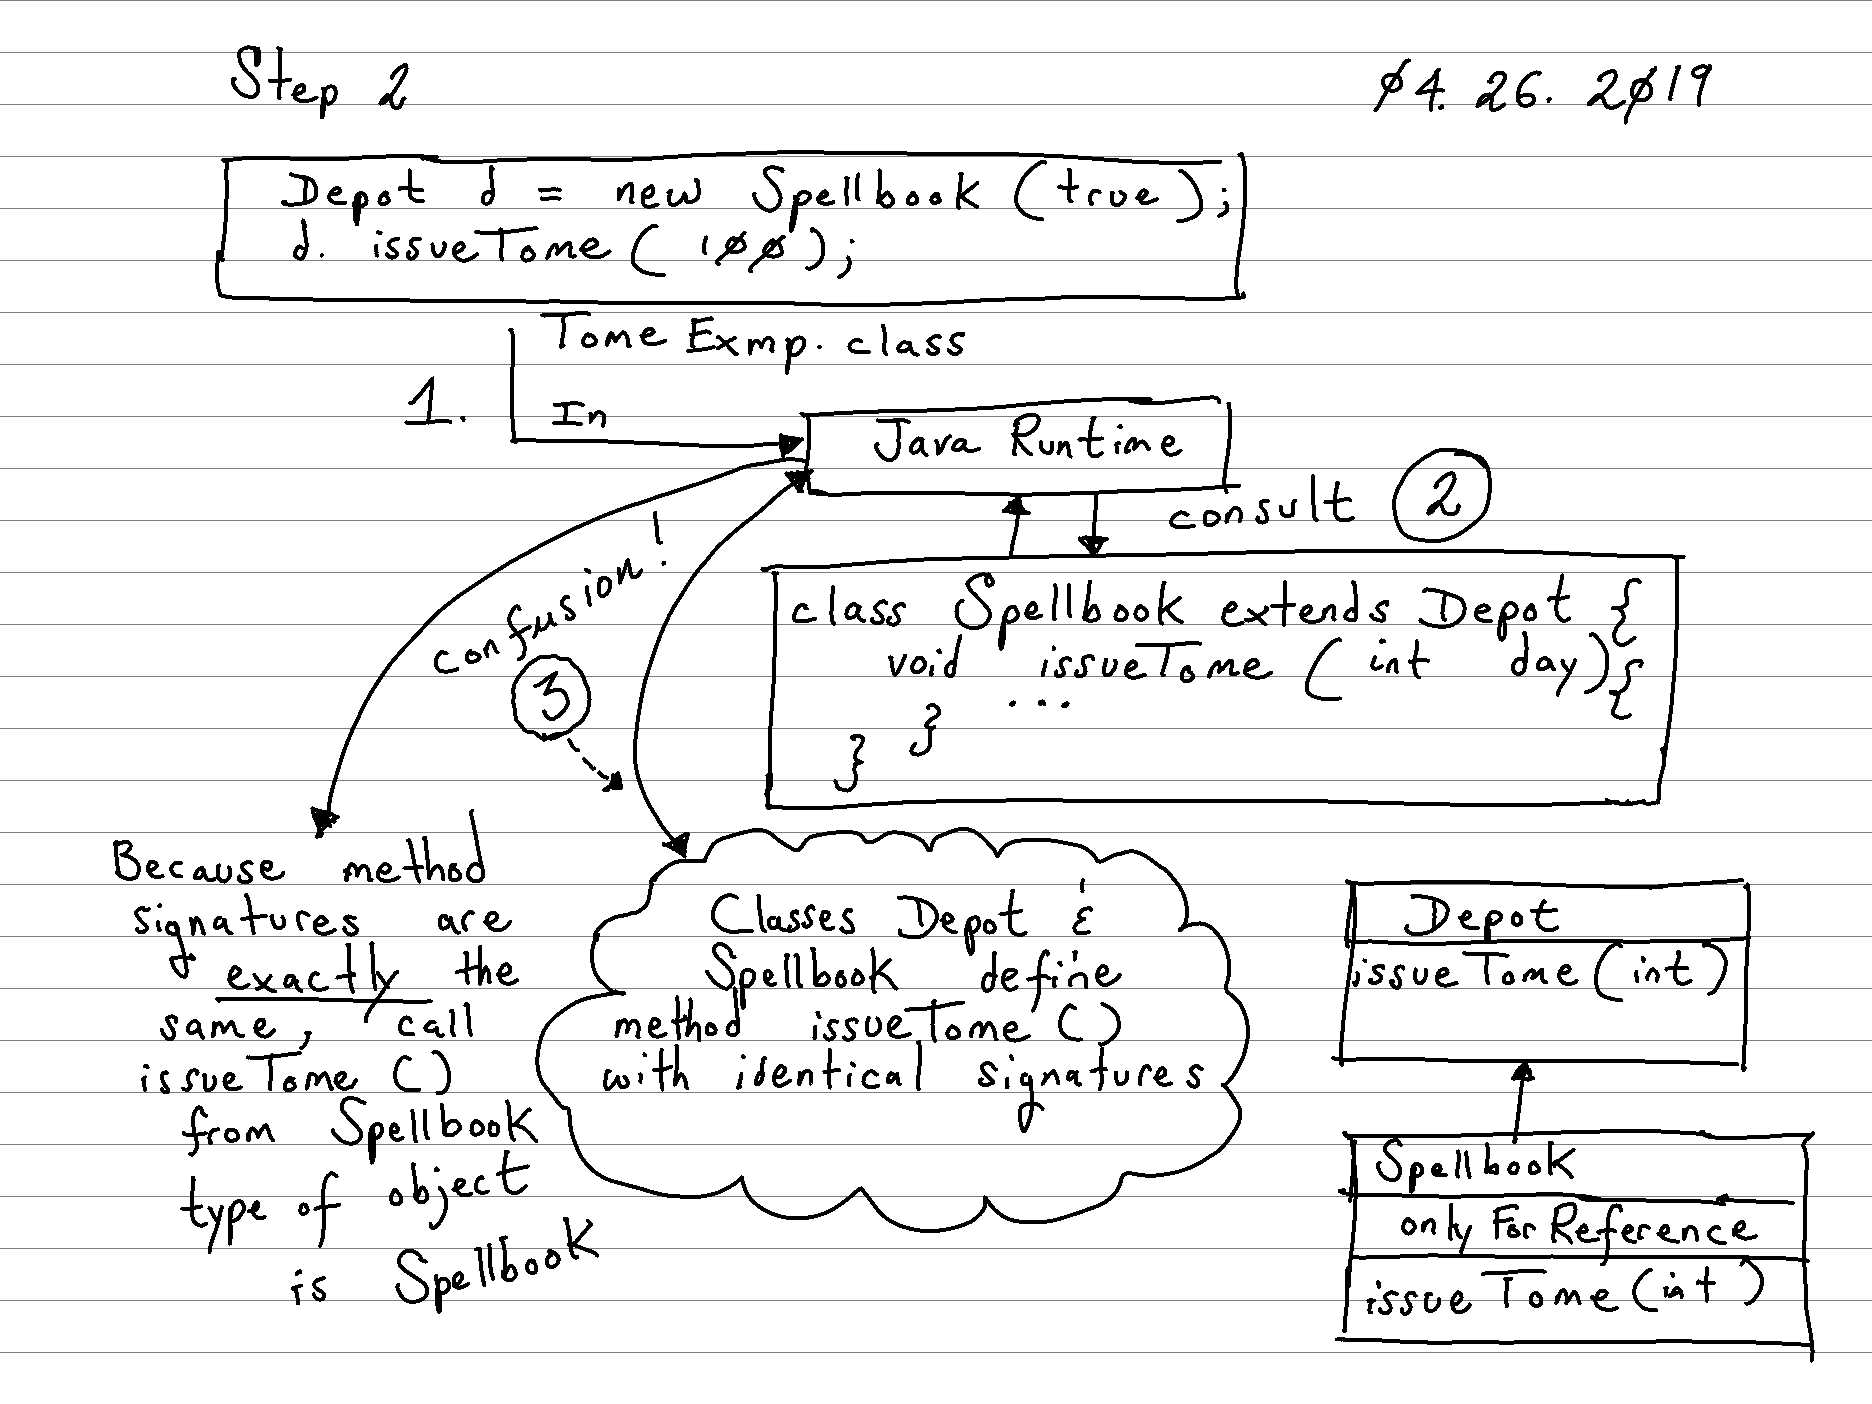 Step 2
Ø4. 26. 2Ø19
Depot d = new Spellbook (true);
d. issueTome ( 1ØØ);
Tome Exmp. class
1.
In
Java Runtime
consult 2
confusion!
3
class Spellbook extends Depot {
void issueTome (int day){
...
}
}
Because method
signatures are
exactly the
same, call
issueTome ()
from Spellbook
type of object
is Spellbook
Classes Depot &
Spellbook define
method issueTome ()
with identical signatures
Depot
issueTome (int)
Spellbook
only For Reference
issueTome (int)